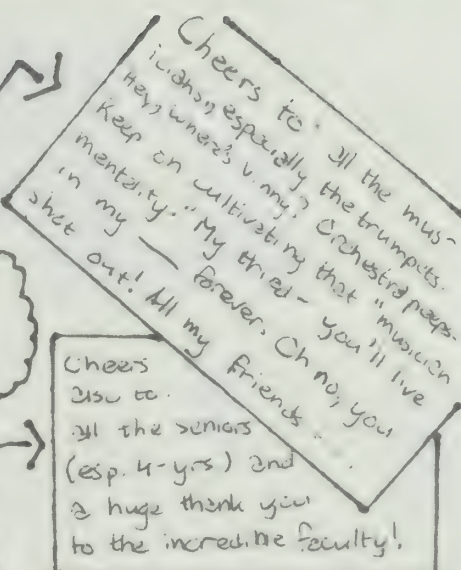 Cheers to: all the mus-
icians, especially the trumpets.
Hey, where's Vinny? Orchestra peeps-
Keep on cultivating that "musician
mentality." My thried- you'll live
in my — forever. Oh no, you
shet out! All my friends...
Cheers
also to.
all the seniors
(esp. 4-yrs) and
a huge thank you
to the incredible faculty!